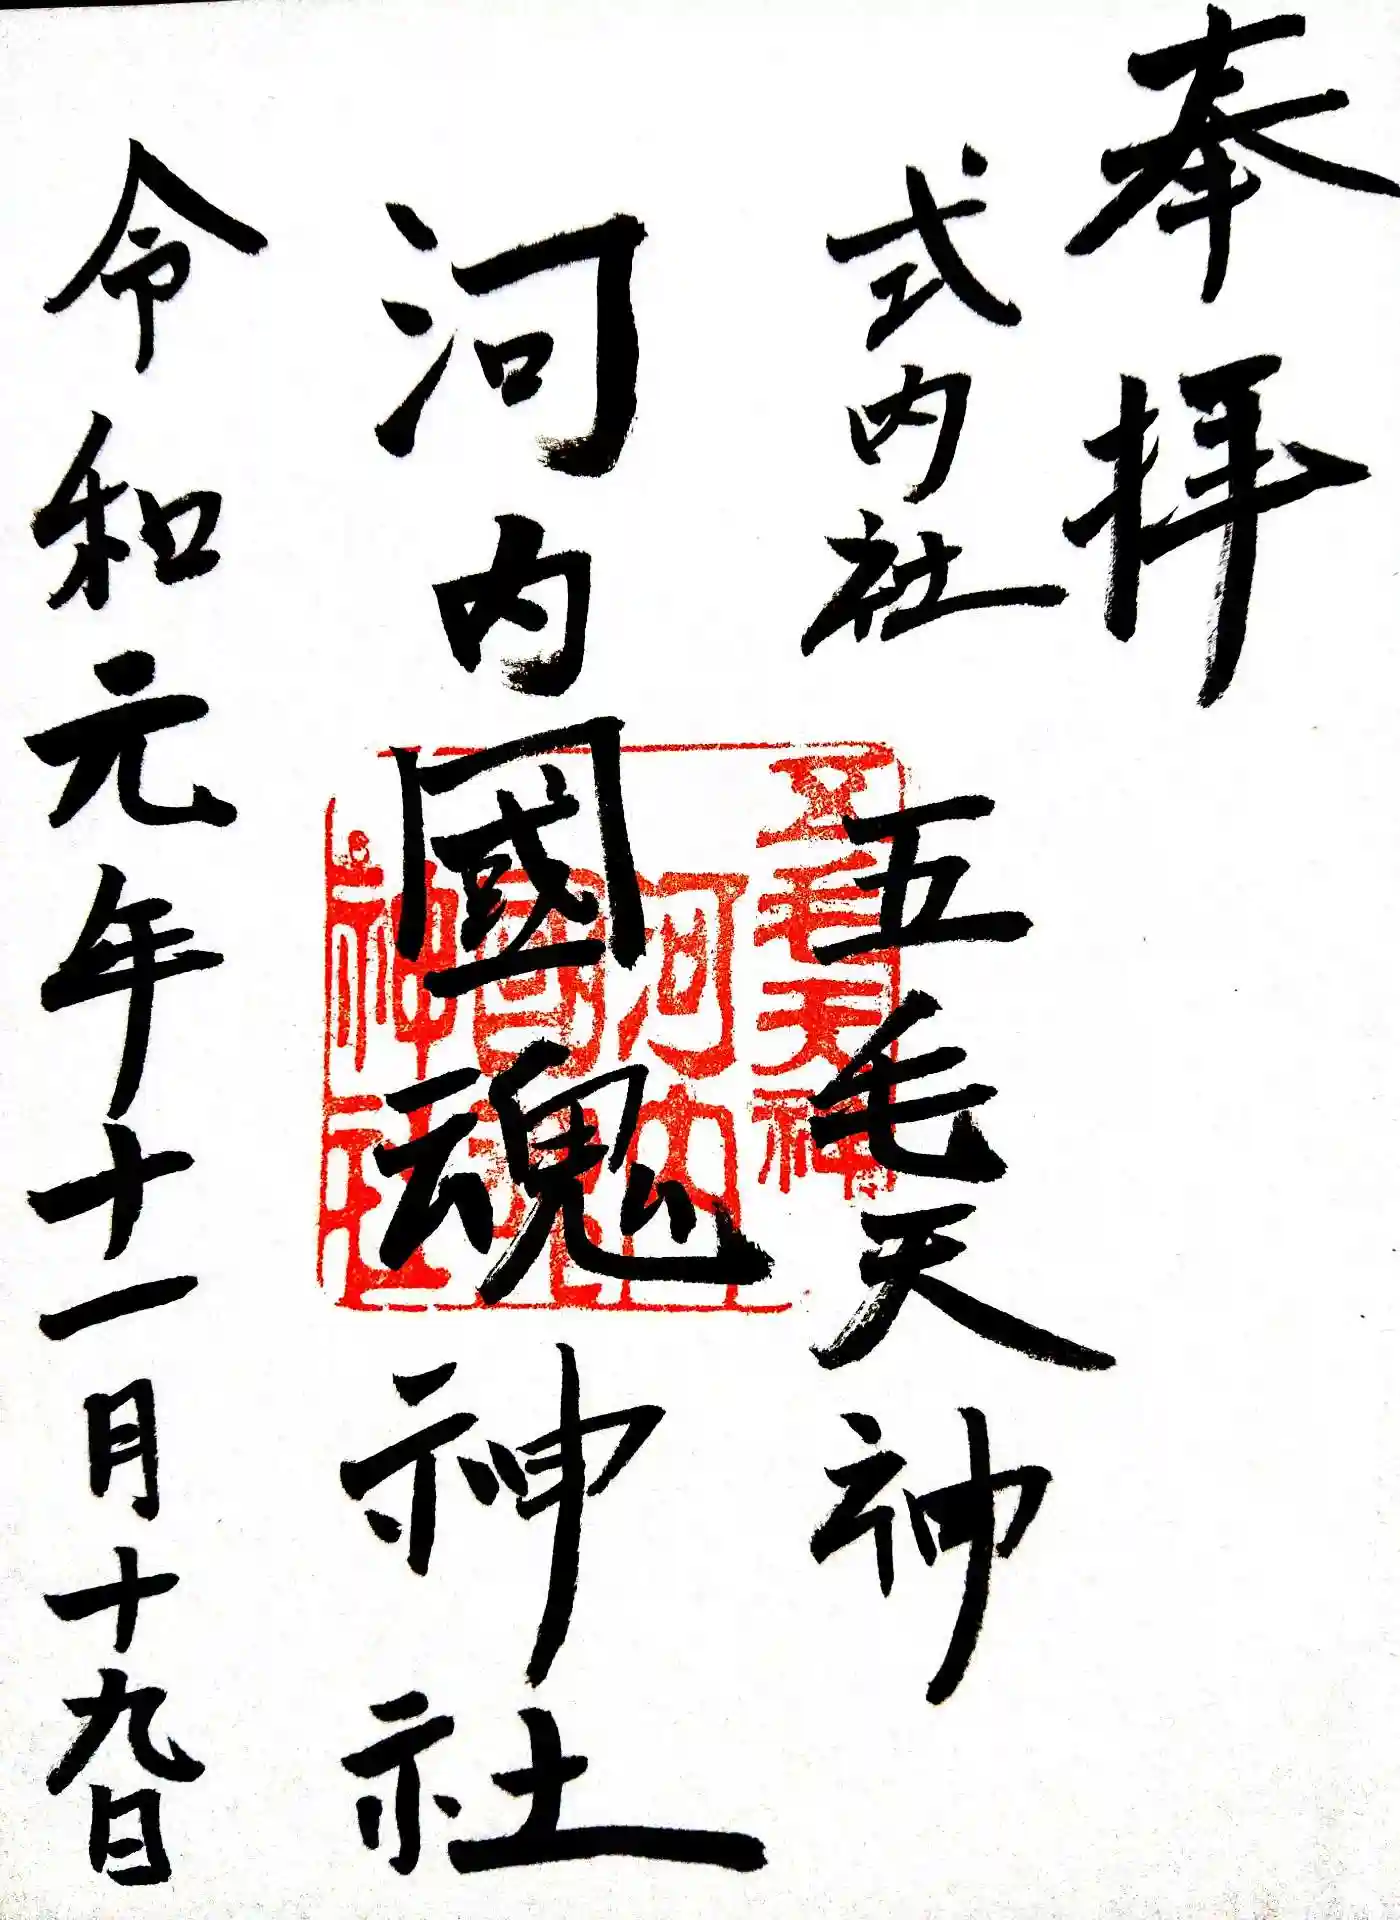 奉拝
式内社 五毛天神
河内國魂神社
令和元年十一月十九日
五毛天神
河内
国魂
神社